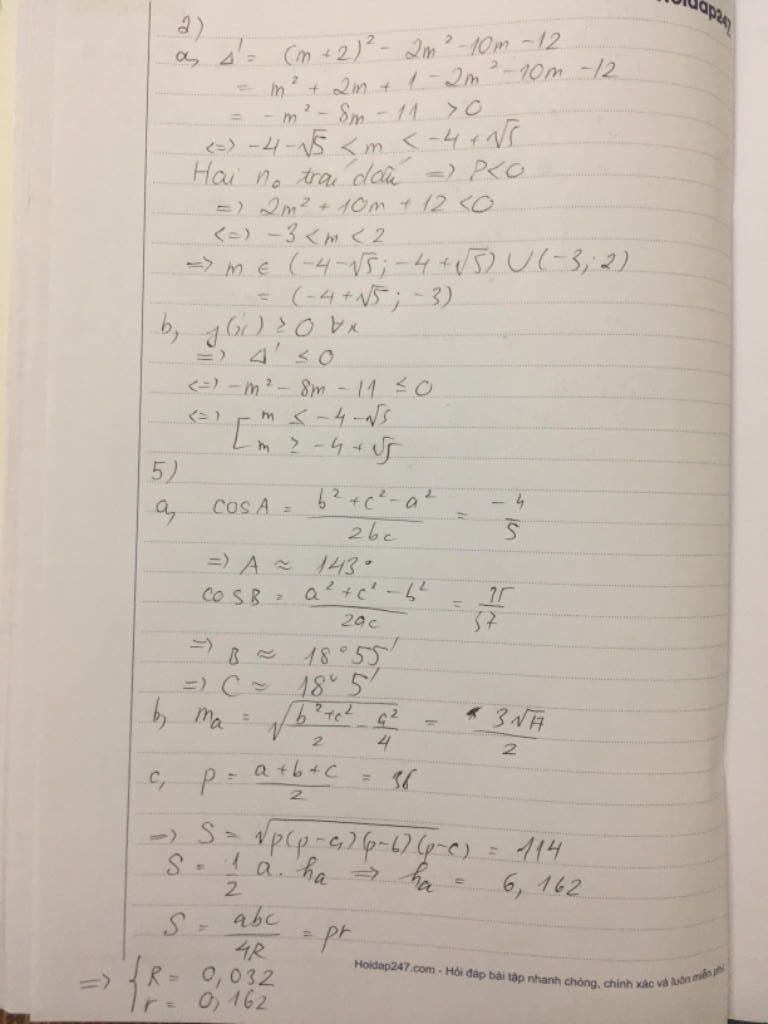 Hoidap247
2)
a, Δ' = (m + 2)² - 2m² - 10m - 12
= m² + 2m + 1 - 2m² - 10m - 12
= -m² - 8m - 11 > 0
<=> -4 - √5 < m < -4 + √5
Hai n₀ trái dấu => P < 0
=> 2m² + 10m + 12 < 0
<=> -3 < m < 2
=> m ∈ (-4-√5; -4+√5) ∪ (-3; 2)
= (-4+√5; -3)
b, f(x) ≥ 0 ∀x
=> Δ' ≤ 0
<=> -m² - 8m - 11 ≤ 0
<=> [ m ≤ -4 - √5
m ≥ -4 + √5
5)
a, cosA = (b² + c² - a²)/(2bc) = -4/5
=> A ≈ 143°
cosB = (a² + c² - b²)/(2ac) = 35/37
=> B ≈ 18°55'
=> C ≈ 18°5'
b, mₐ = √((b²+c²)/2 - a²/4) = 3√17/2
c, p = (a+b+c)/2 = 38
=> S = √(p(p-a)(p-b)(p-c)) = 114
S = 1/2 a. hₐ => hₐ = 6,162
S = abc/4R = pr
=> { R = 0,032
r = 0,162
Hoidap247.com - Hỏi đáp bài tập nhanh chóng, chính xác và luôn miễn phí